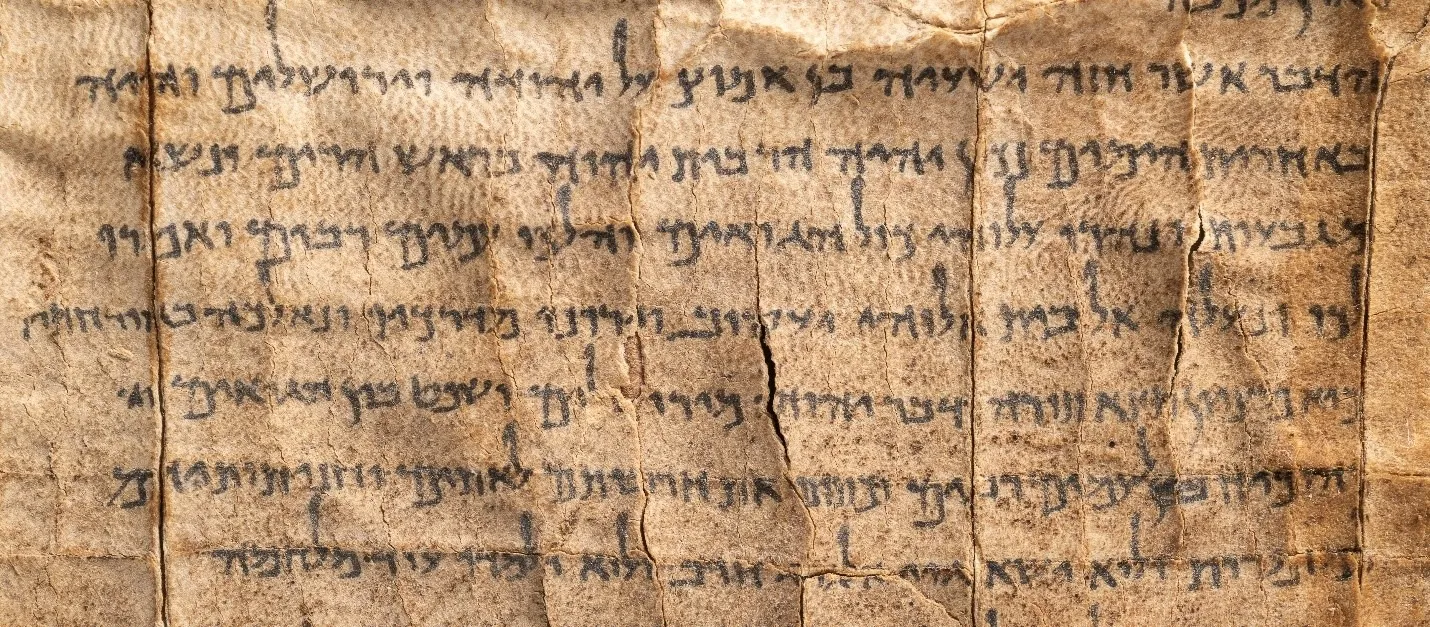 הדבר אשר חזה ישעיה בן אמוץ על יהודה וירושלים והיה
באחרית הימים יהיה הר בית יהוה בראש הרים ונשא
מגבעות ונהרו עלוהי כול הגואים והלכו עמים רבים ואמרו
לכו ונעלה אל בית אלוהי יעקוב וירונו מדרכיו ונאלכה באורחתיו
כיא מציון תצא תורה ודבר יהוה מירושלים ושפט בין הגואים
לעמים רבים וכתתו את חרבותם לאתים וחניתותיהם
למזמרות ולוא ישא גוי אל גוי חרב ולוא ילמדו עוד מלחמה